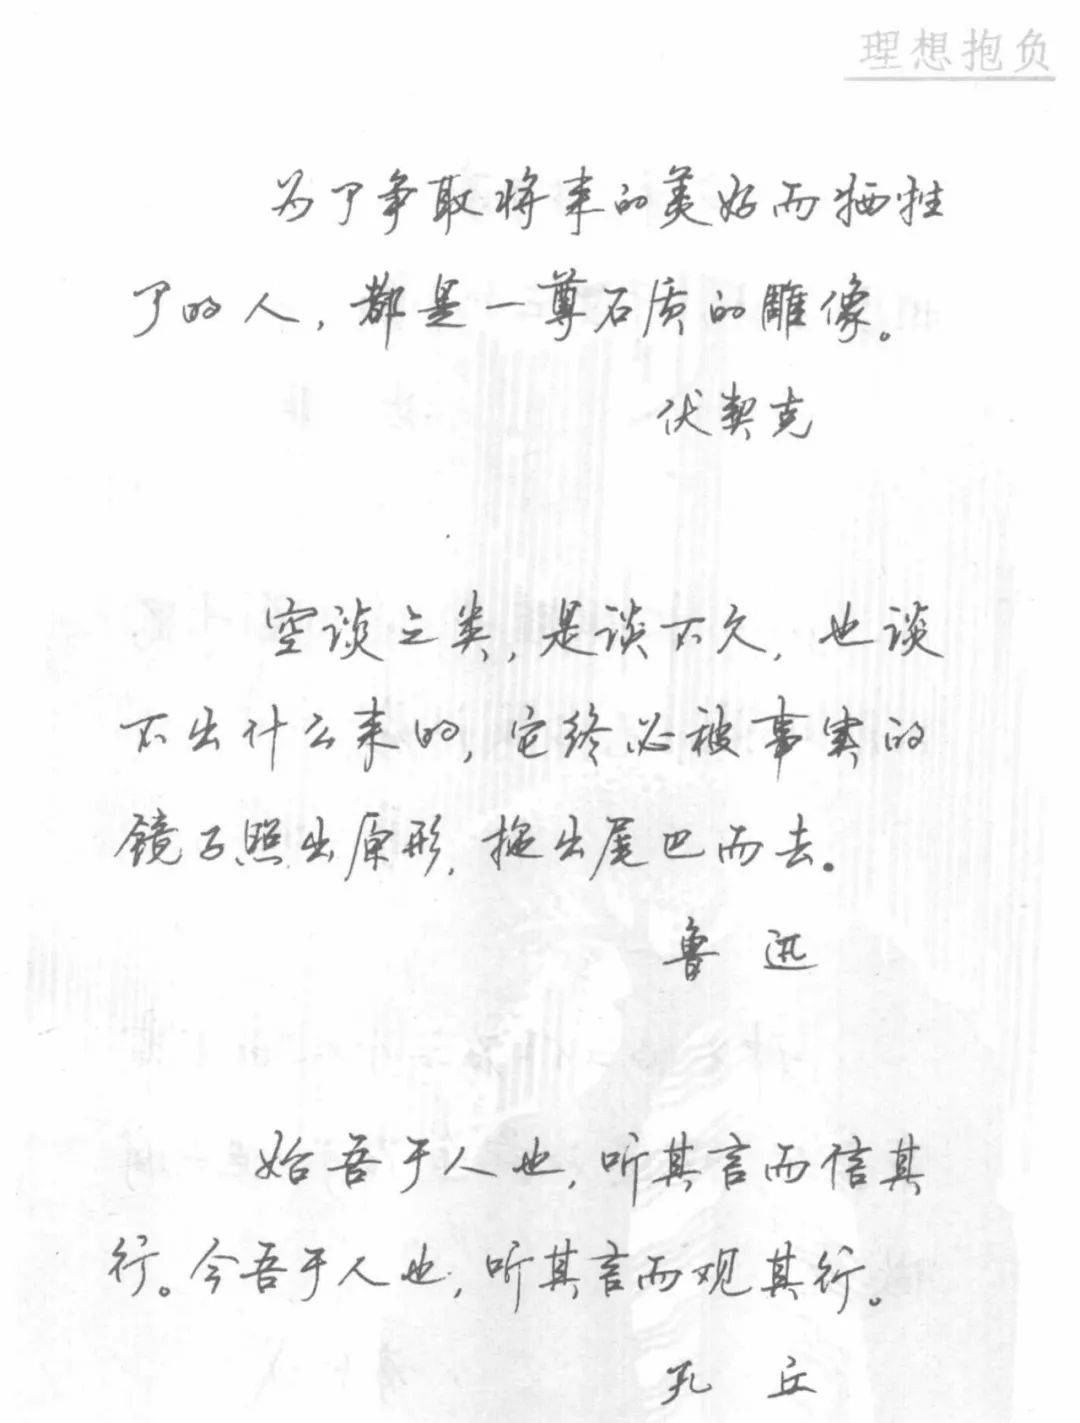 理想抱负
为了争取将来的美好而牺牲
了的人，都是一尊石质的雕像。
伏契克
空谈之类，是谈不久，也谈
不出什么来的，它终必被事实的
镜子照出原形，拖出尾巴而去。
鲁迅
始吾于人也，听其言而信其
行。今吾于人也，听其言而观其行。
孔丘